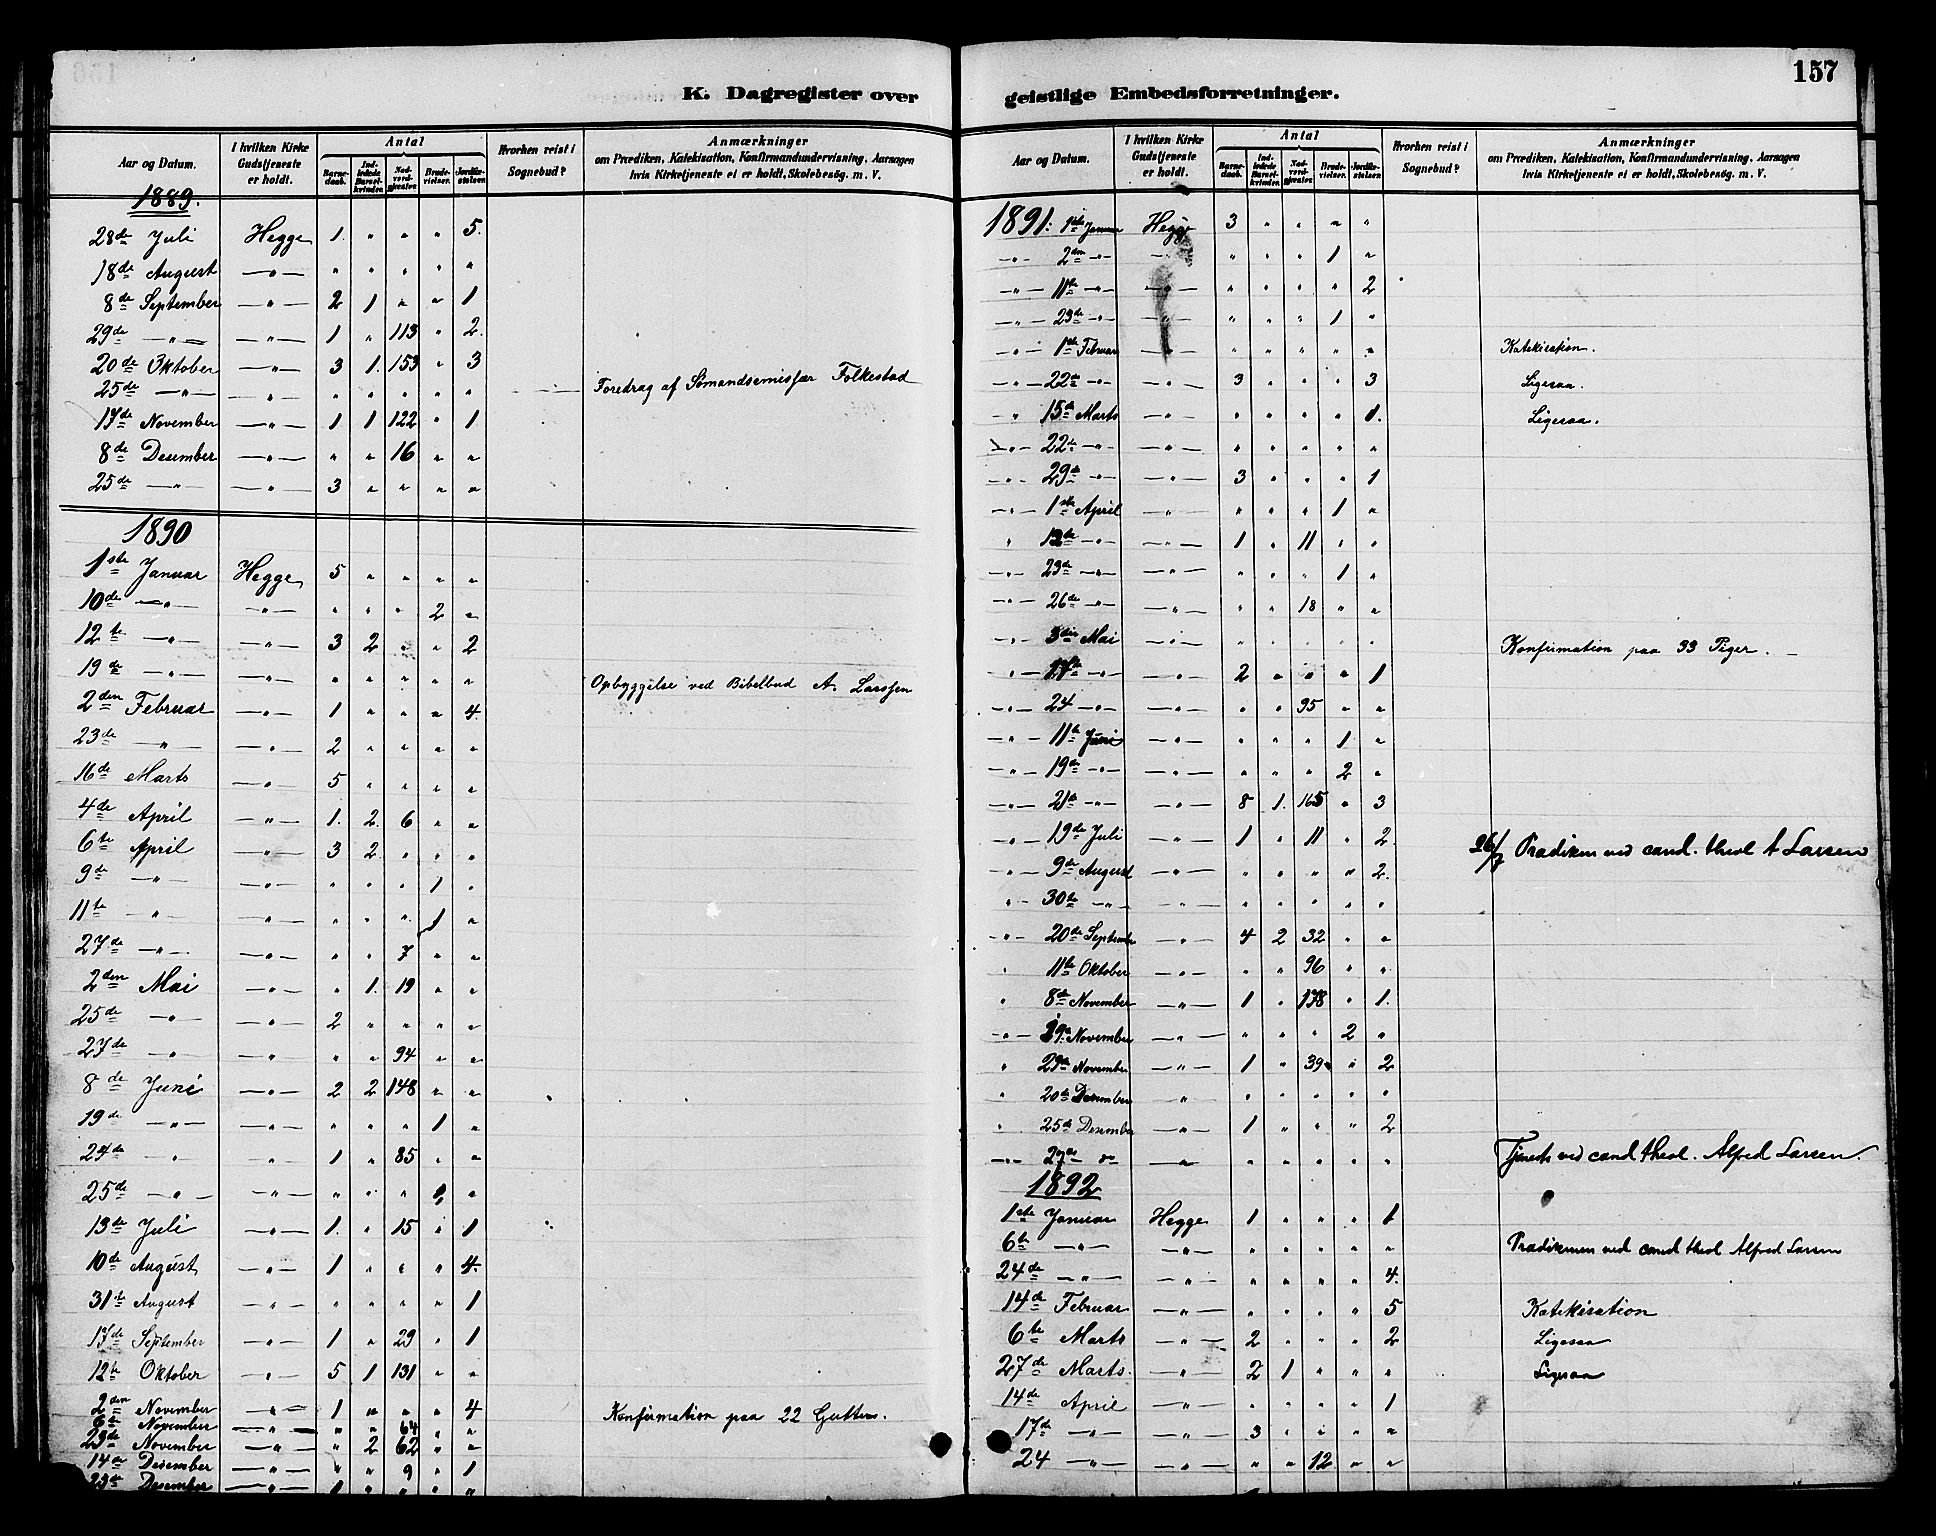 K. Dagregister over
Aar og Datum. I hvilken Kirke Gudstjeneste er holdt. Antal Barnedaab. Indledede Barselkvinder. Nadverdgjester. Brudevielser. Jordfæstelser. Hvorhen reist i Sognebud? Anmærkninger om Prædiken, Katekisation, Konfirmandundervisning, Aarsagen hvis Kirketjeneste ei er holdt, Skolebesøg. m. V.
1889.
28de Juli Hegge 1. " " " 5.
18de August —"— " " " " "
8de September —"— 2 1 " " 1
29de —"— —"— 1 " 113 " 2.
20de Oktober —"— 3 1. 153 " 3
25de —"— —"— " " " " " Foredrag af Sömandsemissær Folkestad
17de November —"— 1 1 122 " 1
8de Desember —"— " " 16 " "
25de —"— —"— 3 " " " "
1890
1ste Januar Hegge 5 " " " "
10de —"— —"— " " " 2 "
12te —"— —"— 3 2 " " 2
19de —"— —"— " " " " " Opbyggelse ved Bibelbud A. Larssen
2den Februar —"— 1 " " " 4.
23de —"— —"— 2 " " " "
16de Marts —"— 5 " " " "
4de April —"— 1. 2. 6 " "
6te April —"— 3 2. " " "
9de —"— —"— " " " 1 "
11te —"— —"— " " " 1 "
27de —"— —"— " " 7 " "
2den Mai —"— " 1. 19 " "
25de —"— —"— 2 " " " "
27de —"— —"— " " 94 " "
8de Juni —"— 2 2 148 " "
19de —"— —"— " " " 1 "
24de " —"— 1 " 85 " "
25de —"— —"— " " " "
13de Juli —"— 1. " 15 " 1
10de August —"— 1 " " " 4.
31te August —"— " " " " 1
17de September —"— 1 " 29 " 1
12te Oktober —"— 5 1 131 " "
2den November —"— 1 " " " 4 Konfirmation paa 22 Gutter.
6te November —"— " " 64 " "
23de November —"— " 2 62 " "
14de Desember —"— " " 9 " 1
Desember —"— 1 " " " "
geistlige Embedsforretninger.
157
Aar og Datum. I hvilken Kirke Gudstjeneste er holdt. Antal Barnedaab. Indledede Barselkvinder. Nadverdgjester. Brudevielser. Jordfæstelser. Hvorhen reist i Sognebud? Anmærkninger om Prædiken, Katekisation, Konfirmandundervisning, Aarsagen hvis Kirketjeneste ei er holdt, Skolebesøg. m. V.
1891. 1ste Januar Hegge 3 " " " "
—"— 2den —"— —"— " " " 1 "
—"— 11te —"— —"— " " " " 2
—"— 23de —"— —"— " " " 1 "
—"— 1ste Februar —"— " " " " " Katekisation.
—"— 22de —"— —"— 3 " " " 3 Ligesaa.
" 15de Marts —"— " " " " 1. Ligesaa.
—"— 22de —"— —"— " " " " "
—"— 29de —"— —"— 3 " " " 1
—"— 1ste April —"— " " " 1 "
" 12te —"— —"— 1 " 11 " "
—"— 23de —"— —"— " " " 1 "
—"— 26de —"— —"— " " 18 " "
—"— 3die Mai —"— " " " " " Konfirmation paa 33 Piger.
—"— 17de —"— —"— 2 " " " 1
—"— 24 —"— —"— " " 95 " "
—"— 11te Juni —"— " " " 1 "
—"— 19de —"— —"— " " " 2 "
—"— 21de —"— —"— 8 1. 165 " 3
—"— 19de Juli —"— 1 " 11 " 2. 26/7 Prædiken ved cand. theol A Larsen
—"— 9de August —"— " " " " 2.
" 30de —"— —"— " " " " "
—"— 20de September —"— 4 2 32 " "
" 11te Oktober —"— " " 96 " "
" 8de November —"— 1 " 178 " 1.
—"— November —"— " " " 2 "
" 29de November —"— 1 " 39 " 2
" 20de Desember —"— " " " " "
" 25de Desember —"— 1 " " " 2
—"— —"— " " " " " Tjeneste ved cand theol. Alfred Larsen.
1892
1ste Januar Hegge 1 " " " 1
6te —"— —"— " " " " " Prædikenen ved cand theol Alfred Larsen
24de —"— —"— " " " " 4.
14de Februar —"— " " " " 5 Katekisation
6te Marts —"— 2 " " " 2 Ligesaa
27de Marts. —"— 2 1 " " " Ligesaa
14de April —"— " " " " 1
17de —"— —"— 3 " " " "
24 —"— —"— " " 12 " "